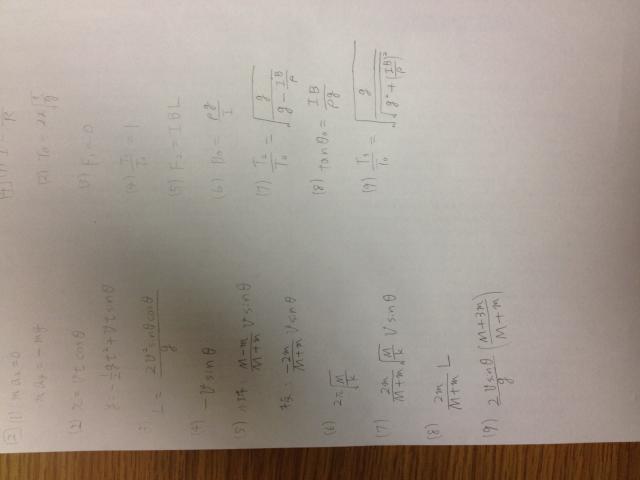 [2] (1) m ax = 0
m ay = -mg
(2) x = Vt cosθ
y = -1/2 gt² + Vt sinθ
(3) L = 2V² sinθcosθ / g
(4) -V sinθ
(5) 小球: (M-m)/(M+m) V sinθ
板: -2m/(M+m) V sinθ
(6) 2π√(M/k)
(7) 2m/(M+m) √(M/k) V sinθ
(8) 2m/(M+m) L
(9) 2V sinθ/g ((M+3m)/(M+m))
(2) T₀ = 2π√(l/g)
(3) F₁ = 0
(4) T₁/T₀ = 1
(5) F₂ = IBL
(6) B₀ = ρg/I
(7) T₂/T₀ = √(g/(g - IB/ρ))
(8) tanθ₀ = IB/ρg
(9) T₃/T₀ = √(g/√(g² + (IB/ρ)²))